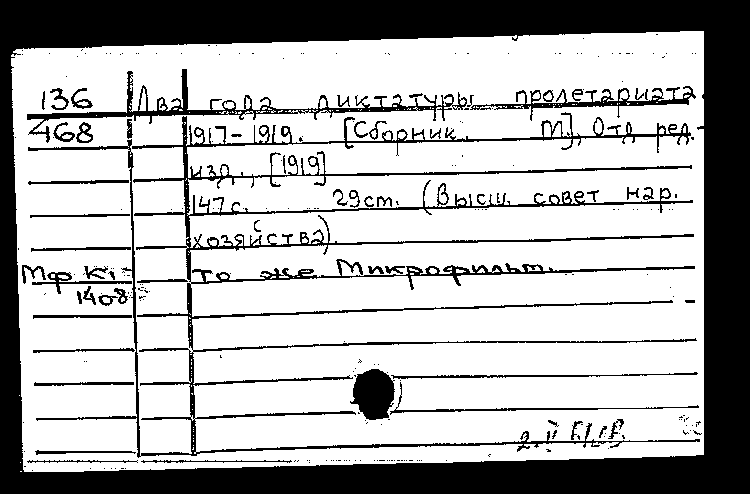 136 Два года диктатуры пролетариата.
468 1917-1919. [Сборник. М], Отд. ред.-
изд., [1919]
147 с. 29 см. (Высш. совет нар.
хозяйства).
Мф К1- то же. Микрофильм.
1408
2. V